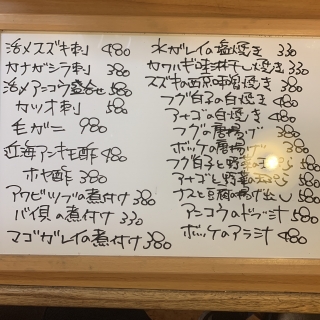 活〆スズキ刺 480
カナガシラ刺 380
活〆アンコウ盛合せ 580
カツオ刺 580
毛ガニ 980
近海アンキモ酢 480
ホヤ酢 380
アワビツブの煮付け 380
バイ貝の煮付け 330
マゴガレイの煮付け 380
水ガレイの塩焼き 330
カワハギ味淋干し焼き 330
スズキの西京味噌焼き 380
フグ白子の白焼き 480
アナゴの白焼き 480
フグの唐揚げ 380
ホッケの唐揚げ 380
フグ白子と野菜の 580
アナゴと野菜の 580
ナスと豆腐の揚げ出し 580
アンコウのドブ汁 580
ホッケのアラ汁 480